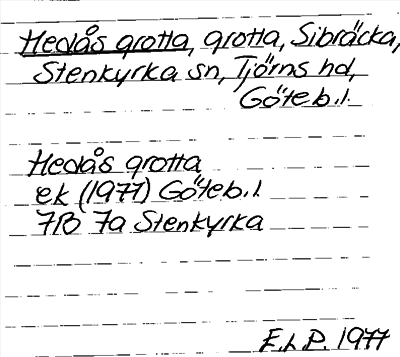 Hedås grotta, grotta, Sibräcka,
Stenkyrka sn, Tjörns hd,
Göteb.l.
Hedås grotta
ek (1977) Göteb.l
7B 7a Stenkyrka
E.L P. 1977